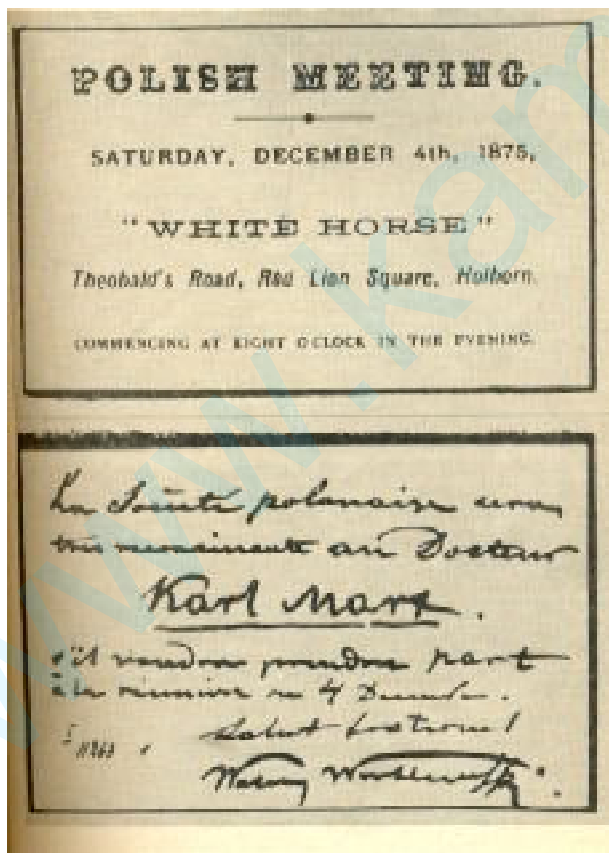 POLISH MEETING.
SATURDAY, DECEMBER 4th, 1875,
"WHITE HORSE"
Theobald's Road, Red Lion Square, Holborn.
COMMENCING AT EIGHT O'CLOCK IN THE EVENING.
La Société polonaise sera
très reconnaissante au Docteur
Karl Marx.
s'il voudra prendre part
à la réunion du 4 Décembre.
Salut fraternel
www.kam